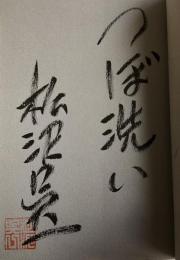 つぼ洗い
松沼呉一